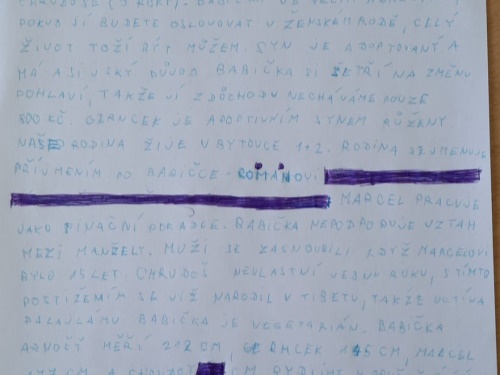 POKUD JÍ BUDETE OSLOVOVAT V ŽENSKÉM RODĚ, CELÝ
ŽIVOT TOŽÍ BÝT MUŽEM. SYN JE ADOPTOVANÝ A
MÁ ASIJSKÝ PŮVOD BABIČKA SI ŠETŘÍ NA ZMĚNU
POHLAVÍ, TAKŽE JÍ Z DŮCHODU NECHÁVÁME POUZE
800 KČ. JE ADOPTIVNÍM SYNEM RŮŽENY
NAŠE RODINA ŽIJE V BYTOVCE 1+2. RODINA SE JMENUJE
PŘÍJMENÍM PO BABIČCE - ROMÁNOVI
MARCEL PRACUJE
JAKO FINAČNÍ PORADCE. BABIČKA NEPODPORUJE VZTAH
MEZI MANŽELY. MUŽI SE ZASNOUBILI KDYŽ MARCELOVI
BYLO 15 LET. CHRUDOŠ NEVLASTNÍ JEDNU RUKU, S TÍMTO
POSTIŽENÍM SE JIŽ NARODIL V TIBETU, TAKŽE UCTÍVÁ
DALAJLÁMU BABIČKA JE VEGETARIÁN. BABIČKA
MĚŘÍ 212 CM, CM, MARCEL